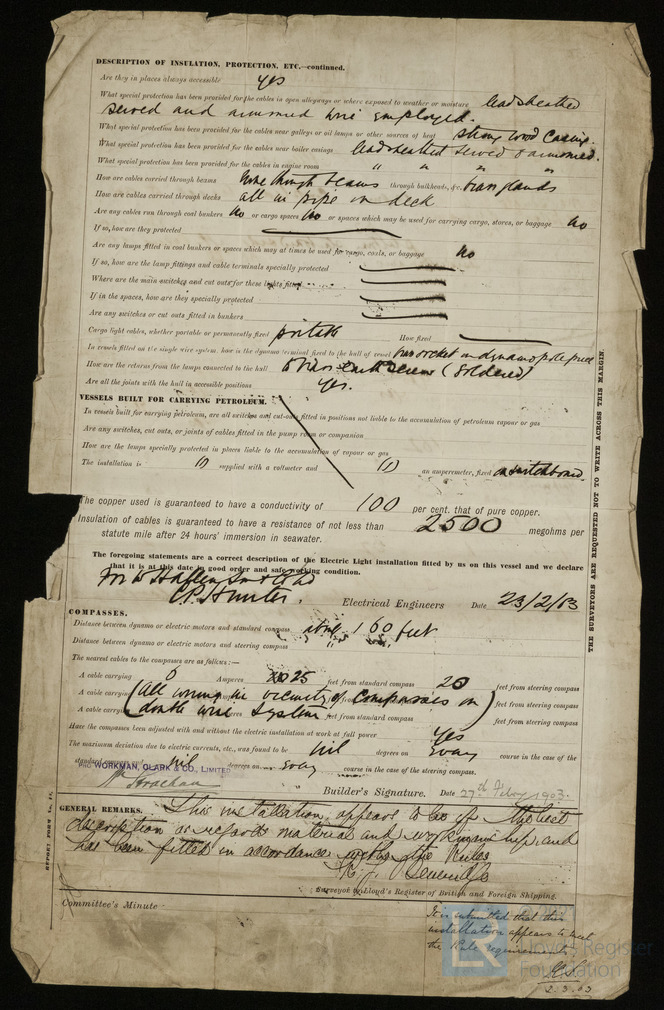 DESCRIPTION OF INSULATION, PROTECTION, ETC.—continued.
Are they in places always accessible yes
What special protection has been provided for the cables in open alleyways or where exposed to weather or moisture leadsheathed
served and armored wire employed.
What special protection has been provided for the cables near galleys or oil lamps or other sources of heat strong wood casing.
What special protection has been provided for the cables near boiler casings leadsheathed served & armoured.
What special protection has been provided for the cables in engine room " " " "
How are cables carried through beams through beams through bulkheads, &c. brass glands
How are cables carried through decks all in pipe in deck
Are any cables run through coal bunkers no or cargo spaces no or spaces which may be used for carrying cargo, stores, or baggage no
If so, how are they protected
Are any lamps fitted in coal bunkers or spaces which may at times be used for cargo, coals, or baggage no
If so, how are the lamp fittings and cable terminals specially protected
Where are the main switches and cut outs for these lights fitted
If in the spaces, how are they specially protected
Are any switches or cut outs fitted in bunkers
Cargo light cables, whether portable or permanently fixed portable How fixed
In vessels fitted on the single wire system, how is the dynamo terminal fixed to the hull of vessel brass socket on dynamo pole piece
How are the returns from the lamps connected to the hull to brass earth screws (soldered)
Are all the joints with the hull in accessible positions Yes.
VESSELS BUILT FOR CARRYING PETROLEUM.
In vessels built for carrying petroleum, are all switches and cut-outs fitted in positions not liable to the accumulation of petroleum vapour or gas
Are any switches, cut outs, or joints of cables fitted in the pump room or companion
How are the lamps specially protected in places liable to the accumulation of vapour or gas
The installation is (1) supplied with a voltmeter and (1) an amperemeter, fixed on switchboard.
The copper used is guaranteed to have a conductivity of 100 per cent. that of pure copper.
Insulation of cables is guaranteed to have a resistance of not less than 2500 megohms per
statute mile after 24 hours' immersion in seawater.
The foregoing statements are a correct description of the Electric Light installation fitted by us on this vessel and we declare
that it is at this date in good order and safe working condition.
C.P. Hunter. Electrical Engineers Date 23/2/03
COMPASSES.
Distance between dynamo or electric motors and standard compass about 160 feet
Distance between dynamo or electric motors and steering compass " " "
The nearest cables to the compasses are as follows:—
A cable carrying 6 Amperes 25 feet from standard compass 20 feet from steering compass
A cable carrying feet from steering compass
(All wiring in vicinity of compasses on
A cable carrying feet from standard compass feet from steering compass
double wire system)
Have the compasses been adjusted with and without the electric installation at work at full power Yes
The maximum deviation due to electric currents, etc., was found to be nil degrees on Every course in the case of the
standard compass and nil degrees on Every course in the case of the steering compass.
PRO WORKMAN, CLARK & CO., LIMITED
Wm Strachan
Builder's Signature. Date 27th Febry 1903
GENERAL REMARKS. This installation appears to be of the best
description as regards material and workmanship, and
has been fitted in accordance with the Rules
Surveyor to Lloyd's Register of British and Foreign Shipping.
Committee's Minute
It is submitted that this
installation appears to meet
the Rule requirements
2.3.03
THE SURVEYORS ARE REQUESTED NOT TO WRITE ACROSS THIS MARGIN.
REPORT FORM No. 17.
Lloyd's Register
Foundation